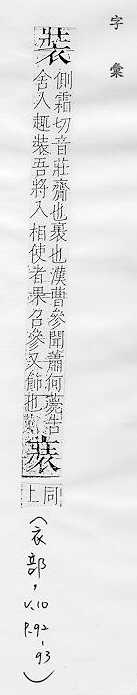 字彙
裝
側霜切音莊齎也裹也漢曹參聞蕭何薨告
舍人趣裝吾將入相使者果召參又飾也
裝
同
上
(衣部, V.10
P.92-93)